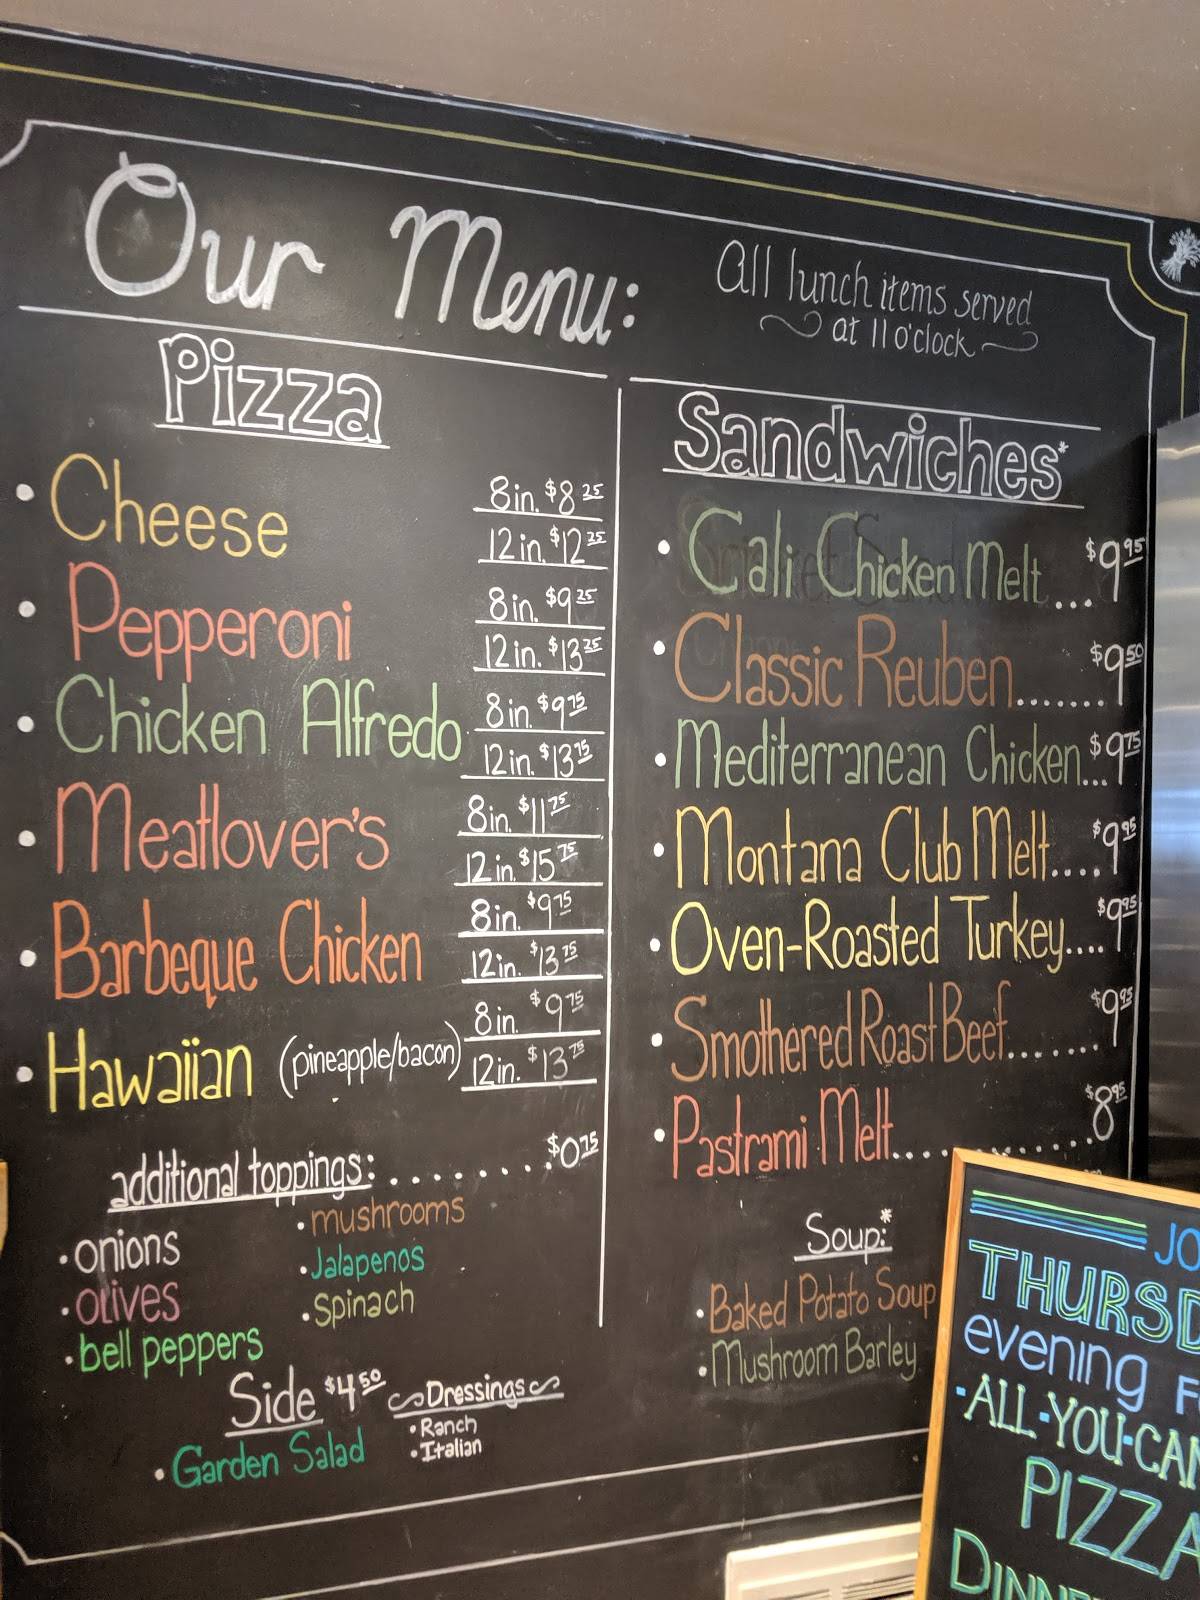 Our Menu:
All lunch items served
at 11 o'clock
Pizza
• Cheese 8in. $8.25
12in. $12.25
• Pepperoni 8in. $9.25
12in. $13.25
• Chicken Alfredo 8in. $9.75
12in. $13.75
• Meatlover's 8in. $11.75
12in. $15.75
• Barbeque Chicken 8in. $9.75
12in. $13.75
• Hawaiian (pineapple/bacon) 8in. $9.75
12in. $13.75
additional toppings:........$0.75
• onions
• olives
• bell peppers
• mushrooms
• Jalapenos
• spinach
Side $4.50
• Garden Salad
Dressings
• Ranch
• Italian
Sandwiches*
• Cali Chicken Melt...$9.95
• Classic Reuben.......$9.50
• Mediterranean Chicken...$9.75
• Montana Club Melt....$9.95
• Oven-Roasted Turkey....$9.95
• Smothered Roast Beef.......$9.95
• Pastrami Melt............$8.95
Soup:*
• Baked Potato Soup
• Mushroom Barley
JO
THURSD
evening F
-ALL-YOU-CAN
PIZZA
DINNE